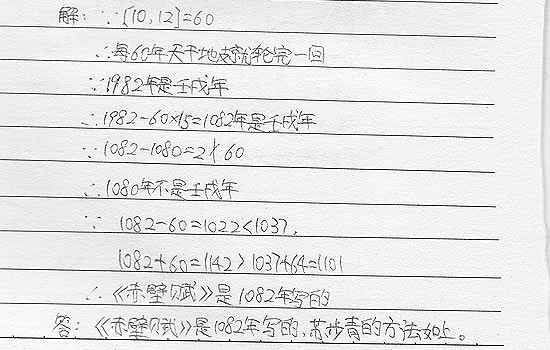 解：∵[10,12]=60
∴每60年天干地支就轮完一回
∵1982年是壬戌年
∴1982-60×15=1082年是壬戌年
∵1082-1080=2<60
∴1080年不是壬戌年
∵ 1082-60=1022<1037,
1082+60=1142>1037+64=1101
∴《赤壁赋》是1082年写的
答：《赤壁赋》是1082年写的,苏步青的方法如上。